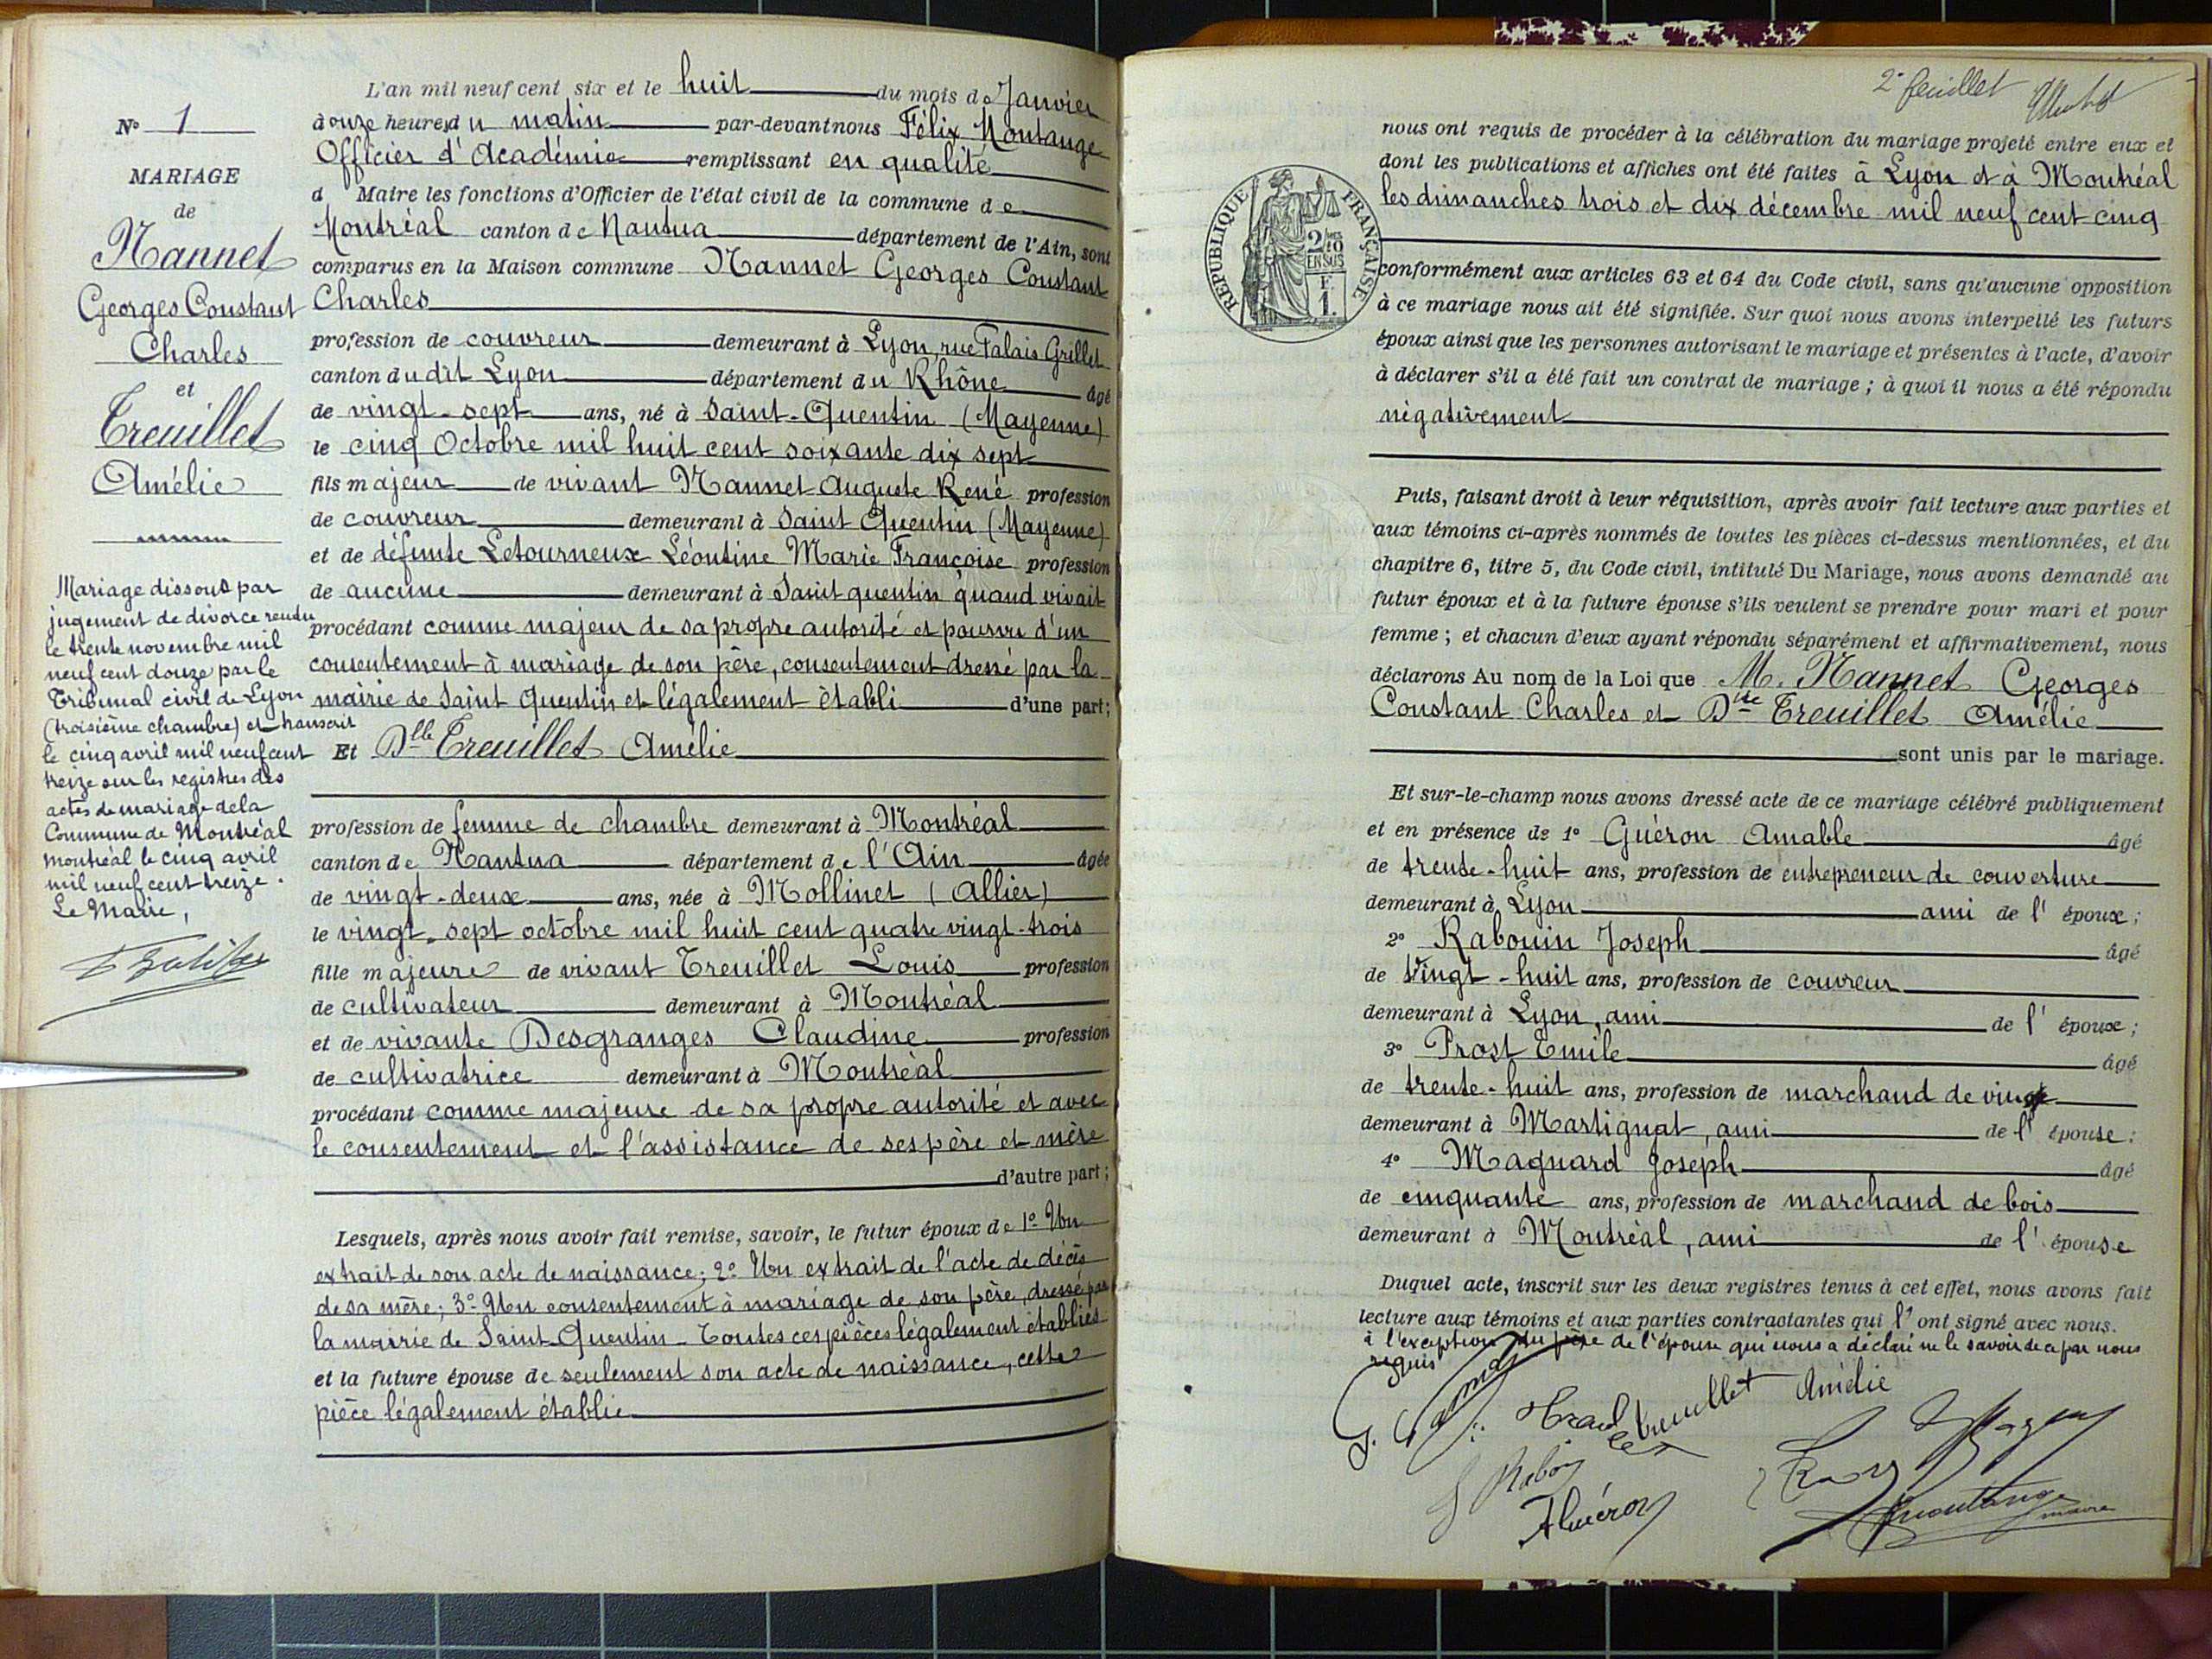 N° 1
MARIAGE
de
Nannet
Georges Constant
Charles
et
Treuillet
Amélie
Mariage dissous par
jugement de divorce rendu
le trente novembre mil
neuf cent douze par le
Tribunal civil de Lyon
(troisième chambre) et transcrit
le cinq avril mil neuf cent
treize sur les registres des
actes de mariage de la
Commune de Montréal
Montréal le cinq avril
mil neuf cent treize.
Le Maire,
L'an mil neuf cent six et le huit du mois de Janvier
à onze heures du matin par-devant nous Félix Montange
Officier d'Académie remplissant en qualité
d Maire les fonctions d'Officier de l'état civil de la commune de
Montréal canton de Nantua département de l'Ain, sont
comparus en la Maison commune Nannet Georges Constant
Charles
profession de couvreur demeurant à Lyon, rue Palais Grillet
canton dudit Lyon département du Rhône âgé
de vingt-sept ans, né à Saint-Quentin (Mayenne)
le cinq Octobre mil huit cent soixante dix sept
fils majeur de vivant Nannet Auguste René profession
de couvreur demeurant à Saint Quentin (Mayenne)
et de défunte Letourneux Léontine Marie Françoise profession
de aucune demeurant à Saint quentin quand vivait
procédant comme majeur de sa propre autorité et pourvu d'un
consentement à mariage de son père, consentement dressé par la
mairie de Saint Quentin et légalement établi d'une part;
Et Dlle Treuillet Amélie
profession de femme de chambre demeurant à Montréal
canton de Nantua département de l'Ain âgée
de vingt-deux ans, née à Mollinet (Allier)
le vingt-sept octobre mil huit cent quatre vingt-trois
fille majeure de vivant Treuillet Louis profession
de cultivateur demeurant à Montréal
et de vivante Desgranges Claudine profession
de cultivatrice demeurant à Montréal
procédant comme majeure de sa propre autorité et avec
le consentement et l'assistance de ses père et mère
d'autre part;
Lesquels, après nous avoir fait remise, savoir, le futur époux de 1° Un
extrait de son acte de naissance; 2° Un extrait de l'acte de décès
de sa mère; 3° Un consentement à mariage de son père, dressé par
la mairie de Saint-Quentin - Toutes ces pièces légalement établies
et la future épouse de seulement son acte de naissance, cette
pièce légalement établie
2e feuillet
nous ont requis de procéder à la célébration du mariage projeté entre eux et
dont les publications et affiches ont été faites à Lyon et à Montréal
les dimanches trois et dix décembre mil neuf cent cinq
RÉPUBLIQUE FRANÇAISE
2/10
EN SUS
E
1.
conformément aux articles 63 et 64 du Code civil, sans qu'aucune opposition
à ce mariage nous ait été signifiée. Sur quoi nous avons interpellé les futurs
époux ainsi que les personnes autorisant le mariage et présentes à l'acte, d'avoir
à déclarer s'il a été fait un contrat de mariage; à quoi il nous a été répondu
négativement
Puis, faisant droit à leur réquisition, après avoir fait lecture aux parties et
aux témoins ci-après nommés de toutes les pièces ci-dessus mentionnées, et du
chapitre 6, titre 5, du Code civil, intitulé Du Mariage, nous avons demandé au
futur époux et à la future épouse s'ils veulent se prendre pour mari et pour
femme; et chacun d'eux ayant répondu séparément et affirmativement, nous
déclarons Au nom de la Loi que M. Nannet Georges
Constant Charles et Dlle Treuillet Amélie
sont unis par le mariage.
Et sur-le-champ nous avons dressé acte de ce mariage célébré publiquement
et en présence de 1° Guéron Amable âgé
de trente-huit ans, profession de entrepreneur de couverture
demeurant à Lyon ami de l'époux;
2° Rabouin Joseph âgé
de vingt-huit ans, profession de couvreur
demeurant à Lyon, ami de l'époux;
3° Prost Emile âgé
de trente-huit ans, profession de marchand de vins
demeurant à Martignat, ami de l'épouse;
4° Magnard Joseph âgé
de cinquante ans, profession de marchand de bois
demeurant à Montréal, ami de l'épouse
Duquel acte, inscrit sur les deux registres tenus à cet effet, nous avons fait
lecture aux témoins et aux parties contractantes qui l'ont signé avec nous.
à l'exception du père de l'épouse qui nous a déclaré ne le savoir de ce par nous
requis
treuillet Amélie
AGuéron
Montange
maire